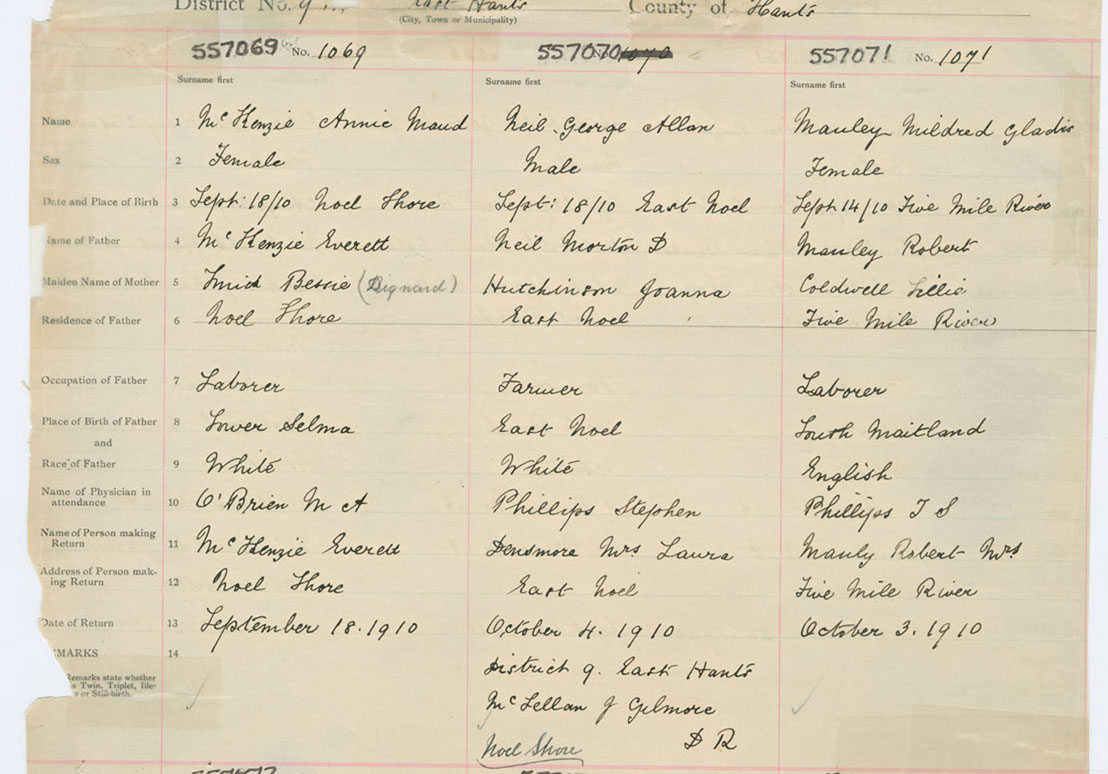 District No. 9 East Hants County of Hants
(City, Town or Municipality)
557069 No. 1069 557070 1070 557071 No. 1071
Surname first Surname first Surname first
Name 1 McKenzie Annie Maud Neil George Allan Manley Mildred Gladis
Sex 2 Female Male Female
Date and Place of Birth 3 Sept: 18/10 Noel Shore Sept: 18/10 East Noel Sept 14/10 Five Mile River
Name of Father 4 McKenzie Everett Neil Morton D Manley Robert
Maiden Name of Mother 5 Bessie Hutchinson Joanna Coldwell Lillie
Residence of Father 6 Noel Shore East Noel Five Mile River
Occupation of Father 7 Laborer Farmer Laborer
Place of Birth of Father 8 Lower Selma East Noel South Maitland
and
Race of Father 9 White White English
Name of Physician in
attendance 10 O'Brien M A Phillips Stephen Phillips T S
Name of Person making
Return 11 McKenzie Everett Densmore Mrs Laura Manly Robert Mrs
Address of Person mak-
ing Return 12 Noel Shore East Noel Five Mile River
Date of Return 13 September 18. 1910 October 4. 1910 October 3. 1910
EMARKS 14
District 9. East Hants
Remarks state whether
s Twin, Triplet, Ille-
e or Still-birth.
McLellan J Gilmore
Noel Shore D R